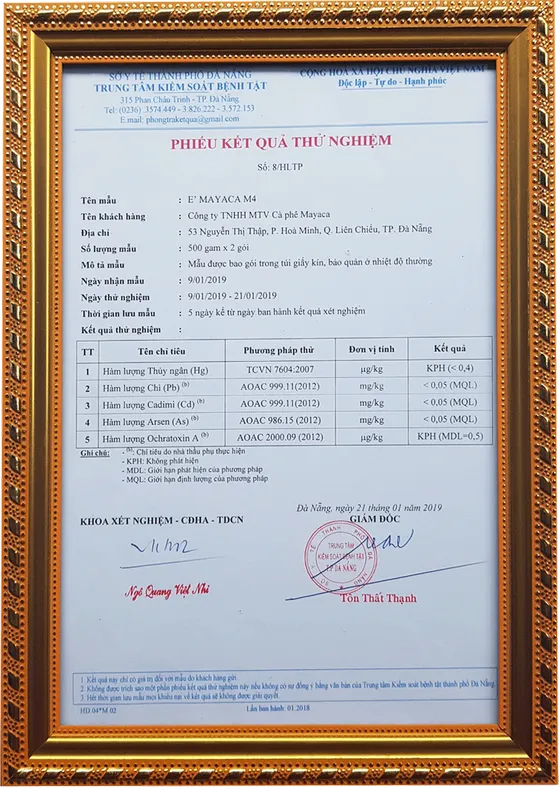 SỞ Y TẾ THÀNH PHỐ ĐÀ NẴNG
TRUNG TÂM KIỂM SOÁT BỆNH TẬT
315 Phan Châu Trinh - TP. Đà Nẵng
Tel: (0236) 3574.449 - 3.826.222 - 3.572.153
E.mail: phongtraketqua@gmail.com
CỘNG HÒA XÃ HỘI CHỦ NGHĨA VIỆT NAM
Độc lập - Tự do - Hạnh phúc
PHIẾU KẾT QUẢ THỬ NGHIỆM
Số: 8/HLTP
Tên mẫu : E' MAYACA M4
Tên khách hàng : Công ty TNHH MTV Cà phê Mayaca
Địa chỉ : 53 Nguyễn Thị Thập, P. Hoà Minh, Q. Liên Chiểu, TP. Đà Nẵng
Số lượng mẫu : 500 gam x 2 gói
Mô tả mẫu : Mẫu được bao gói trong túi giấy kín, bảo quản ở nhiệt độ thường
Ngày nhận mẫu : 9/01/2019
Ngày thử nghiệm : 9/01/2019 - 21/01/2019
Thời gian lưu mẫu : 5 ngày kể từ ngày ban hành kết quả xét nghiệm
Kết quả thử nghiệm :
TT Tên chỉ tiêu Phương pháp thử Đơn vị tính Kết quả
1 Hàm lượng Thủy ngân (Hg) TCVN 7604:2007 µg/kg KPH (< 0,4)
2 Hàm lượng Chì (Pb) (b) AOAC 999.11(2012) mg/kg < 0,05 (MQL)
3 Hàm lượng Cadimi (Cd) (b) AOAC 999.11(2012) mg/kg < 0,05 (MQL)
4 Hàm lượng Arsen (As) (b) AOAC 986.15 (2012) mg/kg < 0,05 (MQL)
5 Hàm lượng Ochratoxin A (b) AOAC 2000.09 (2012) µg/kg KPH (MDL=0,5)
Ghi chú: - (b): Chỉ tiêu do nhà thầu phụ thực hiện
- KPH: Không phát hiện
- MDL: Giới hạn phát hiện của phương pháp
- MQL: Giới hạn định lượng của phương pháp
Đà Nẵng, ngày 21 tháng 01 năm 2019
KHOA XÉT NGHIỆM - CĐHA - TDCN
GIÁM ĐỐC
SỞ Y TẾ THÀNH PHỐ ĐÀ NẴNG
TRUNG TÂM
KIỂM SOÁT BỆNH TẬT
TP ĐÀ NẴNG
Ngô Quang Việt Nhi
Tôn Thất Thạnh
1. Kết quả này chỉ có giá trị đối với mẫu do khách hàng gửi.
2. Không được trích sao một phần phiếu kết quả thử nghiệm này nếu không có sự đồng ý bằng văn bản của Trung tâm Kiểm soát bệnh tật thành phố Đà Nẵng
3. Hết thời gian lưu mẫu mọi khiếu nại về kết quả sẽ không được giải quyết.
HD.04*M.02
Lần ban hành: 01.2018